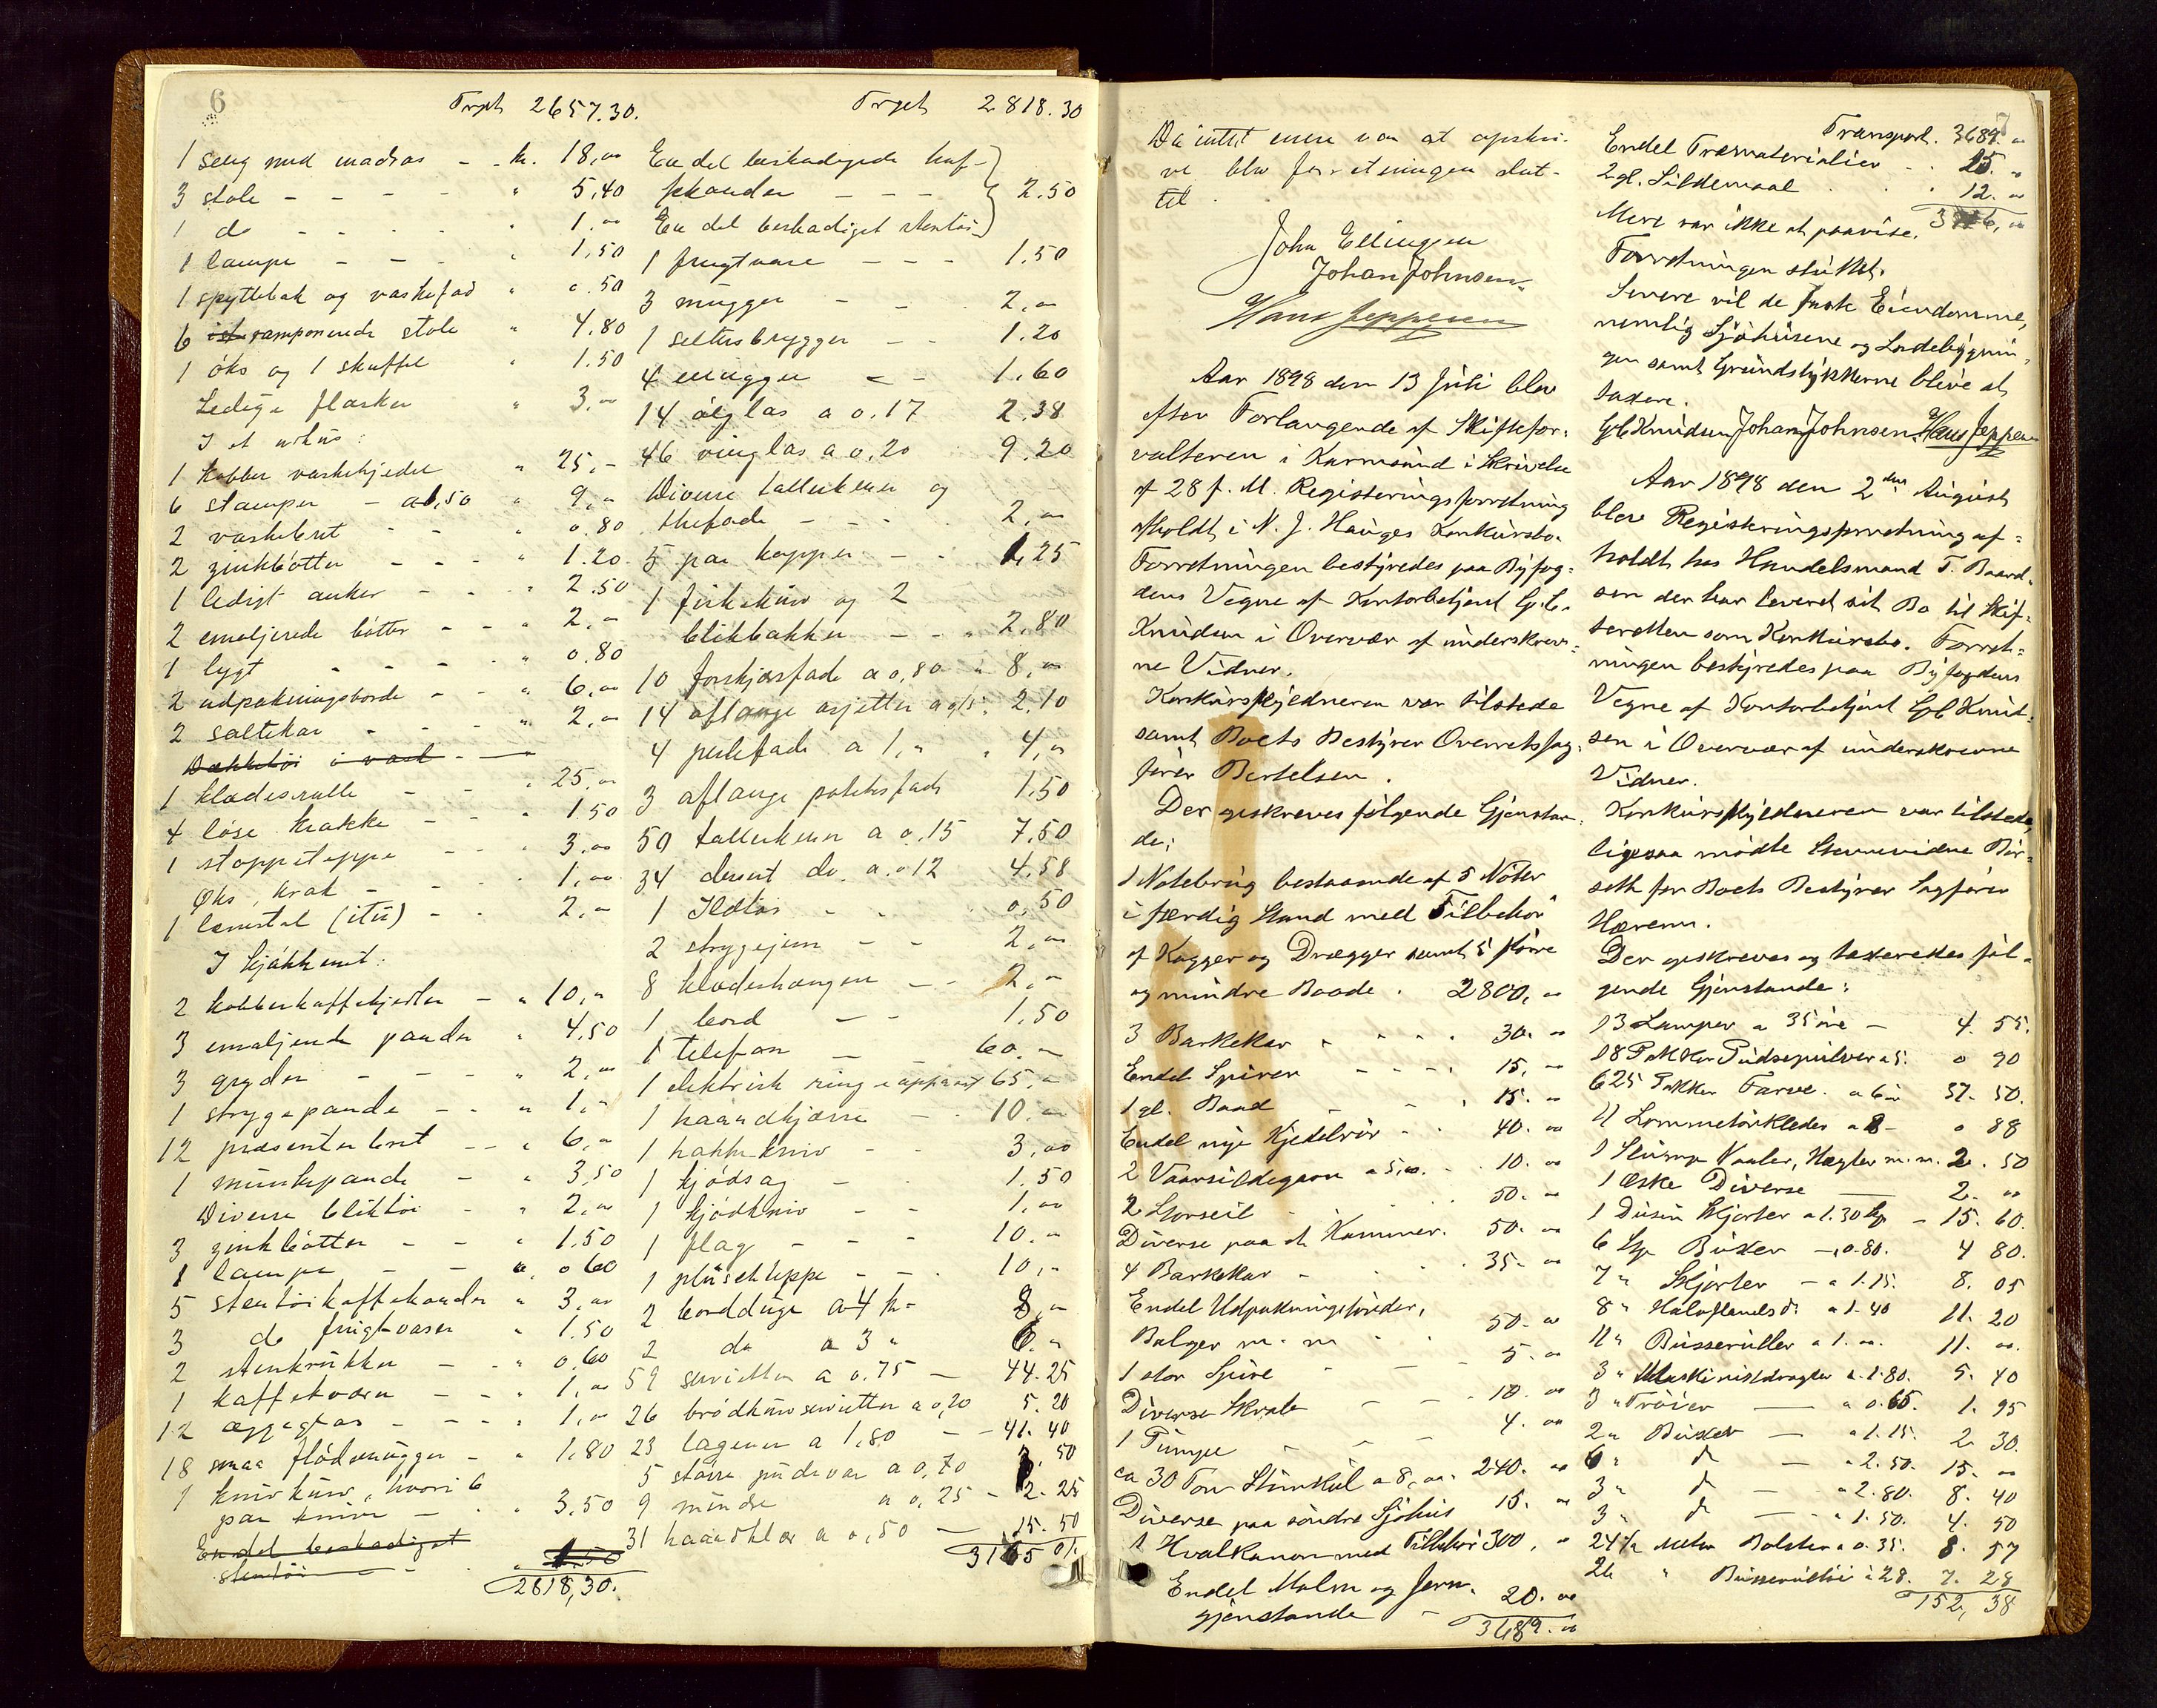 6
Trspt 2657.30.
1 seng med madras - - kr. 18,00
3 stole - - - - " 5,40
1 do - - - - " 1.00
1 lampe - - - " 1,50
1 spyttebak og vaskefad " 0.50
6 ramponerede stole " 4,80
1 øks og 1 skuffel " 1.50
Ledige flasker " 3,00
I et uthus:
1 kobber vaskekjedel " 25,-
6 stamper - a 1,50 " 9,"
2 vaskebret - - " 0.80
2 zinkbøtter - - - " 1.20
1 ledigt anker - - - " 2.50
2 emaljerede bøtter - - " 2,-
1 lygt - - - - " 0.80
2 udpakningsborde - - " 6,00
2 saltekar - - - " 2,00
Dækketøi i vask
1 kladesrulle - - - " 25,00
4 løse krakke - - - " 1.50
1 stoppeteppe - - - 3.00
Øks, krak - - - 1,00
1 lænestol (itu) - - 2,-
I kjøkkenet:
2 kobberkaffekjedler - " 10,"
3 emaljerede pander " 4,50
3 gryder - - - - " 2,00
1 strygepande - - " 1,"
12 presenterbret - - " 6,"
1 munkepande - " 3,50
Diverse bliktøi - " 2,00
3 zinkbøtter - - " 1.50
1 lampe - - " 0 60
5 stentøikaffekander " 3,00
3 do frugtvaser " 1.50
2 stenkrukker - - " 0,60
1 kaffekværn - - " 1,00
12 æggeglas - - - " 1,00
18 smaa flødemugger - " 1,80
1 knivkurv, hvori 6
par knive - " 3,50
En del beskadiget
stentøi - - - " 1.50
2818,30.
Trspt 2818.30
En del beskadigede kaf-
fekander - - -
En del beskadiget stentøi } 2.50
1 frugtvase - - - 1.50
3 mugger - - - 2,00
1 seltersbrygger - - 1.20
4 mugger - - 1.60
14 ølglas a 0.17 2.38
46 vinglas a 0,20 9.20
Diverse tallerkener og
thefade - - - 2,00
5 par kopper - - 1,25
1 fiskekurv og 2
blikbakker - - " 2,80
10 forskjærsfade a 0,80 " 8,00
14 aflange asjetter a 0,15. 2.10
4 perlefade a 1," " 4,"
3 aflange potetesfade 1.50
50 tallerkener a 0.15 7.50
34 desert do. a. 0 12 4.58
1 Ildtøi - - 0,50
2 strygejern - - 2,00
8 klædeshængere - - 2,-
1 bord - - 1.50
1 telefon - - 60.-
1 elektrisk ringeapparat 65,"
1 haandkjærre - - 10.00
1 hakkekniv - - 3,00
1 kjødsag - - 1.50
1 kjødkniv - - 1,00
1 flag - - - 10.-
1 plüschteppe - - . 10,-
2 bordduge a 4 kr- 8,-
2 do a 3 " 6.-
59 servietter a 0.75 - 44.25
26 brødkurvservietter a 0,20 5.20
23 lagener a 1,80 - - 41.40
5 større pudevar a 0,70 3,50
9 mindre a 0,25 - 2.25
31 haandklær a 0,50 - 15.50
3165 01.
Da intet mere var at opskri-
ve blev forretningen slut-
tet.
John Ellingsen
Johan Johnsen
Hans Jeppesen
Aar 1898 den 13 Juli blev
efter Forlangende af Skiftefor-
valteren i Karmsund i Skrivelse
af 28 f. M. Registeringsforretning
afholdt i N. J. Hauges Konkursbo.
Forretningen bestyredes paa Byfog-
dens Vegne af Kontorbetjent G. C.
Knudsen i Overvær af underskrev-
ne Vidner.
Konkursskyldneren var tilstede
samt Boets Bestyrer Overretssag-
fører Bertelsen.
Der opskreves følgende Gjenstan-
de:
1 Notebrug bestaaende af 5 Nøter
i færdig Stand med Tilbehør
af Kagger og Drægger samt 5 større
og mindre Baade . 2800,00
3 Barkekar " " " 30.00
Endel Spirer - - - 15,00
1 gl. Baad - - 15.00
Endel nye Kjedelrør - - 40.00
2 Vaarsildegarn a 5,00. - 10.00
2 Storseil - 50.00
Diverse paa et Kammer. 50.00
4 Barkekar - - 35.00
Endel Udpakningstønder,
Balger m. m - 50.00
1 stor Spire - - 5.00
Diverse Skrab - - 10.00
1 Pumpe - - 4.00
ca 30 Ton Stenkul a 8,00. 240.00
Diverse paa søndre Sjøhus 15.00
1 Hvalkanon med Tilbehør 300,00
Endel Malm og Jern-
gjenstande - 20.00
3689.00
7
Transport. 3689.00
Endel Træmaterialier . . 25.00
2 gl. Sildemaal . . . 12.00
3726,00
Mere var ikke at paavise.
Forretningen sluttet.
Senere vil de faste Eiendomme,
nemlig Sjøhusene og Landbygnin-
gen samt Grundstykkerne blive at
taxere.
G C Knudsen Johan Johnsen. Hans Jeppesen
Aar 1898 den 2den August
blev Registreringsforretning af-
holdt hos Handelsmand T. Baard-
sen der har leveret sit Bo til Skif-
teretten som Konkursbo. Forret-
ningen bestyredes paa Byfogdens
Vegne af Kontorbetjent G C Knud-
sen i Overvær af underskrevne
Vidner.
Konkursskyldneren var tilstede,
ligesaa mødte Stevnevidne Bir-
seth for Boets Bestyrer Sagfører
Hærem.
Der opskreves og taxeredes føl-
gende Gjenstande:
13 Lamper a 35 øre - 4. 55.
18 Pakker Pudsepulver a 5. 0 90
625 Pakker Farve. a 6 ø 37. 50.
11 Lommetørklæder a 8 - 0 88
1 Slump Naaler, Hægter m. m. 2. 50
1 Æske Diverse - 2. 00
1 Dusin Skjorter a 1.30 Stp - 15. 60.
6 Stp Buxer - a 0.80. 4 80.
7 " Skjorter - a 1.15. 8. 05
8 " Halvflanels do a 1.40 11. 20
11 " Busseruller a 1.00. 11. 00.
3 " Maskinistdragter a. 1.80. 5. 40
3 " Trøier - a 0.65. 1. 95
2 " Buxer - a 1.15. 2. 30.
6 " do - a 2.50. 15. 00
3 " do - a 2.80. 8. 40
3 " do - a 1.50. 4. 50
24½ Meter Bolster a 0.35. 8. 57
26 " Busserultøi a 28. 7. 28
152, 38